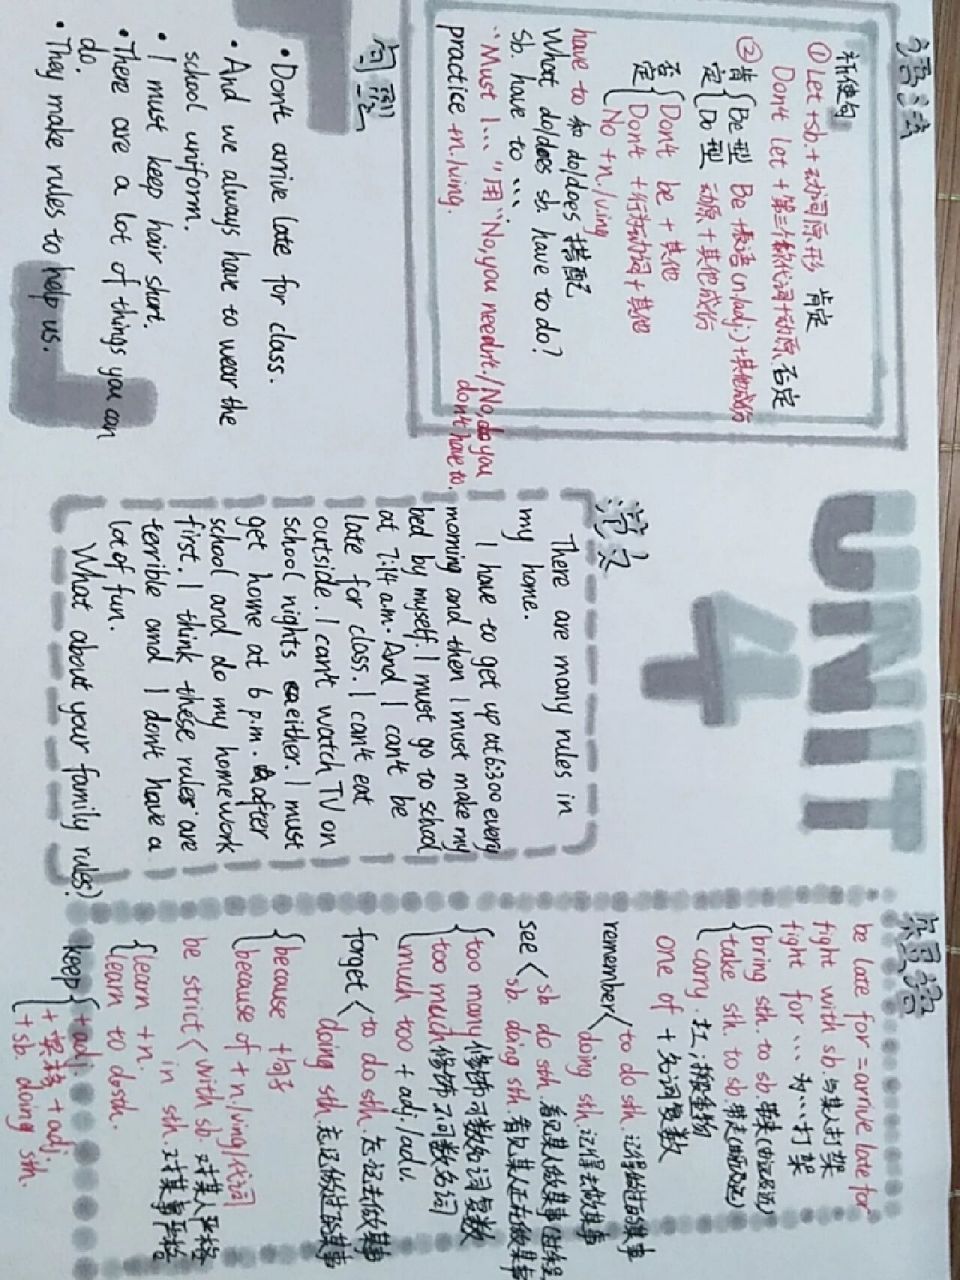 UNIT
4
语法
祈使句
①Let+sb.+动词原形 肯定
Don't let+第三人称代词+动原 否定
②肯定{Be型 Be+表语(n./adj.)+其他成份
Do型 动原+其他成份
否定{Don't be+其他
Don't+行为动词+其他
No+n./ving
have to 和 do/does 搭配
What do/does sb. have to do?
Sb. have to ....
"Must I..."用"No, you needn't./No, you
don't have to.
practice+n./ving.
句型
• Don't arrive late for class.
• And we always have to wear the
school uniform.
• I must keep hair short.
• There are a lot of things you can
do.
• They make rules to help us.
范文
There are many rules in
my home.
I have to get up at 6:300 every
morning and then I must make my
bed by myself. I must go to school
at 7:14 a.m. And I can't be
late for class. I can't eat
outside. I can't watch TV on
school nights either. I must
get home at 6 p.m. after
school and do my homework
first. I think these rules are
terrible and I don't have a
lot of fun.
What about your family rules?
短语
be late for=arrive late for
fight with sb. 与某人打架
fight for... 为...打架
{bring sth. to sb. 带来(由远及近)
take sth. to sb. 带走(由近及远)
carry. 扛;搬重物
one of+名词复数
remember<to do sth.
doing sth.
see<sb do sth. 看见某人做某事
sb. doing sth. 看见某人正在做某事
{too many 修饰可数名词复数
too much 修饰不可数名词
much too+adj./adv.
forget<to do sth. 忘记去做某事
doing sth. 忘记做过的某事
{because+句子
because of+n./ving/代词
be strict<with sb. 对某人严格
in sth. 对某事严格
{learn+n.
learn to do sth.
keep{+adj.
+宾格+adj.
+sb. doing sth.